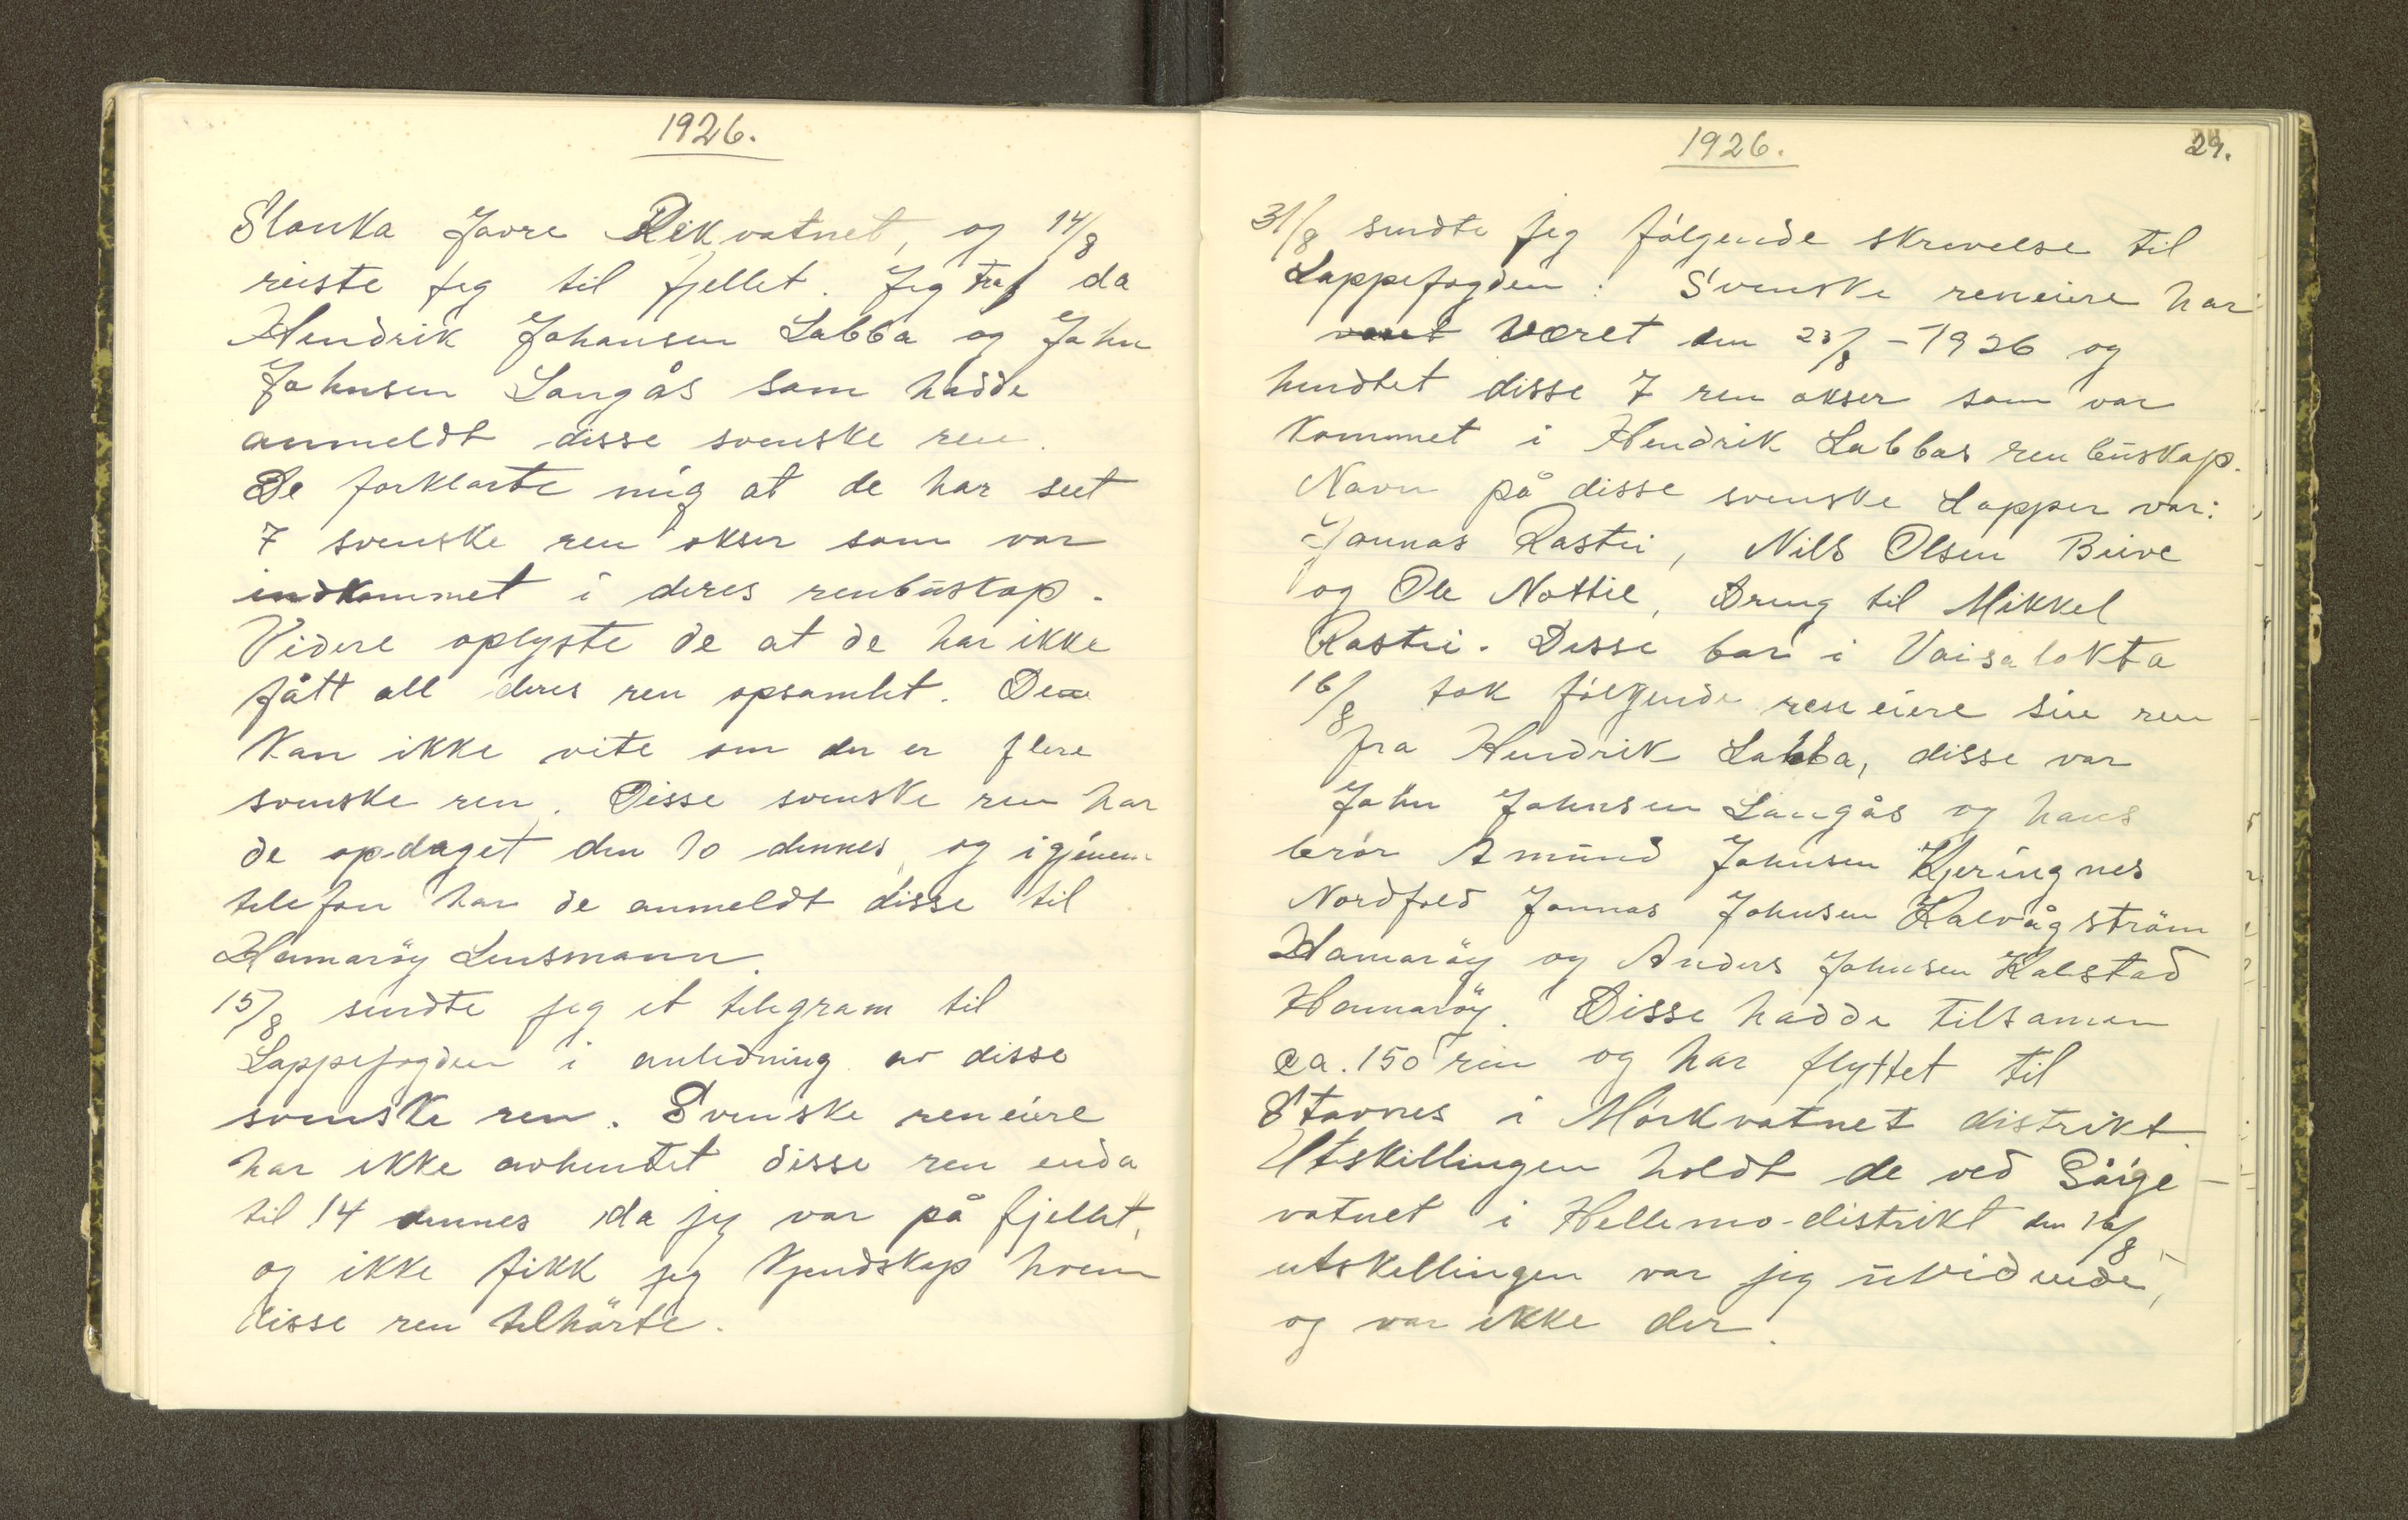 1926.
Slanka Javre Rekvatnet, og 14/8
reiste jeg til fjellet. Jeg traf da
Hendrik Johansen Labba og John
Johnsen Langås som hadde
anmeldt disse svenske ren.
De forklarte mig at de har seet
7 svenske ren okser som var
indkommet i deres renbuskap.
Videre oplyste de at de har ikke
fått all deres ren opsamlet. De
Kan ikke vite om der er flere
svenske ren. Disse svenske ren har
de opdaget den 10 dennes, og igjenem
telefon har de anmeldt disse til
Hamarøy Lensmann.
15/8 sendte jeg et telegram til
Lappefogden i anledning av disse
svenske ren. Svenske reneiere
har ikke avhentet disse ren enda
til 14 dennes da jeg var på fjellet,
og ikke fikk jeg Kjendskap hvem
disse ren tilhörte.
1926.
29.
31/8 sendte jeg følgende skrivelse til
Lappefogden: Svenske reneiere har
været den 23/8 - 1926 og
hendtet disse 7 ren okser som var
Kommet i Hendrik Labbas ren buskap.
Navn på disse svenske Lapper var:
Jonnas Rastei, Nils Olsen Beive
og Ole Nottie, Dreng til Mikkel
Rastei. Disse bar i Vaisalokta
16/8 tok følgende ren eiere sine ren
fra Hendrik Labba, disse var
John Johnsen Langås og hans
brór Amund Johnsen Kjeringnes
Nordfold Jonnas Johnsen Kalvåg ström
Hamarøy og Anders Johnsen Kalstad
Hammarøy. Disse hadde tilsamen
ca. 150 ren og har flyttet til
Stavnes i Mörkvatnet distrikt.
Utskillingen holdt de ved Såige-
vatnet i Hellemo-distrikt den 16/8,
utskellingen var jeg uvidende,
og var ikke der.